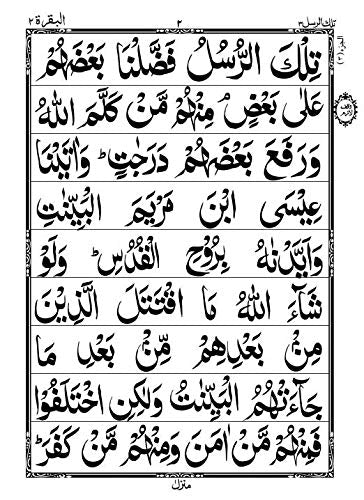 تلك الرسل ٣ ٢ البقرة ٢
تِلْكَ الرُّسُلُ فَضَّلْنَا بَعْضَهُمْ
عَلٰى بَعْضٍ ۘ مِنْهُمْ مَّنْ كَلَّمَ اللّٰهُ
وَرَفَعَ بَعْضَهُمْ دَرَجٰتٍ ؕ وَاٰتَيْنَا
عِيْسَى ابْنَ مَرْيَمَ الْبَيِّنٰتِ
وَاَيَّدْنٰهُ بِرُوْحِ الْقُدُسِ ؕ وَلَوْ
شَآءَ اللّٰهُ مَا اقْتَتَلَ الَّذِيْنَ
مِنْۢ بَعْدِهِمْ مِّنْۢ بَعْدِ مَا
جَآءَتْهُمُ الْبَيِّنٰتُ وَلٰكِنِ اخْتَلَفُوْا
فَمِنْهُمْ مَّنْ اٰمَنَ وَمِنْهُمْ مَّنْ كَفَرَ ؕ
منزل